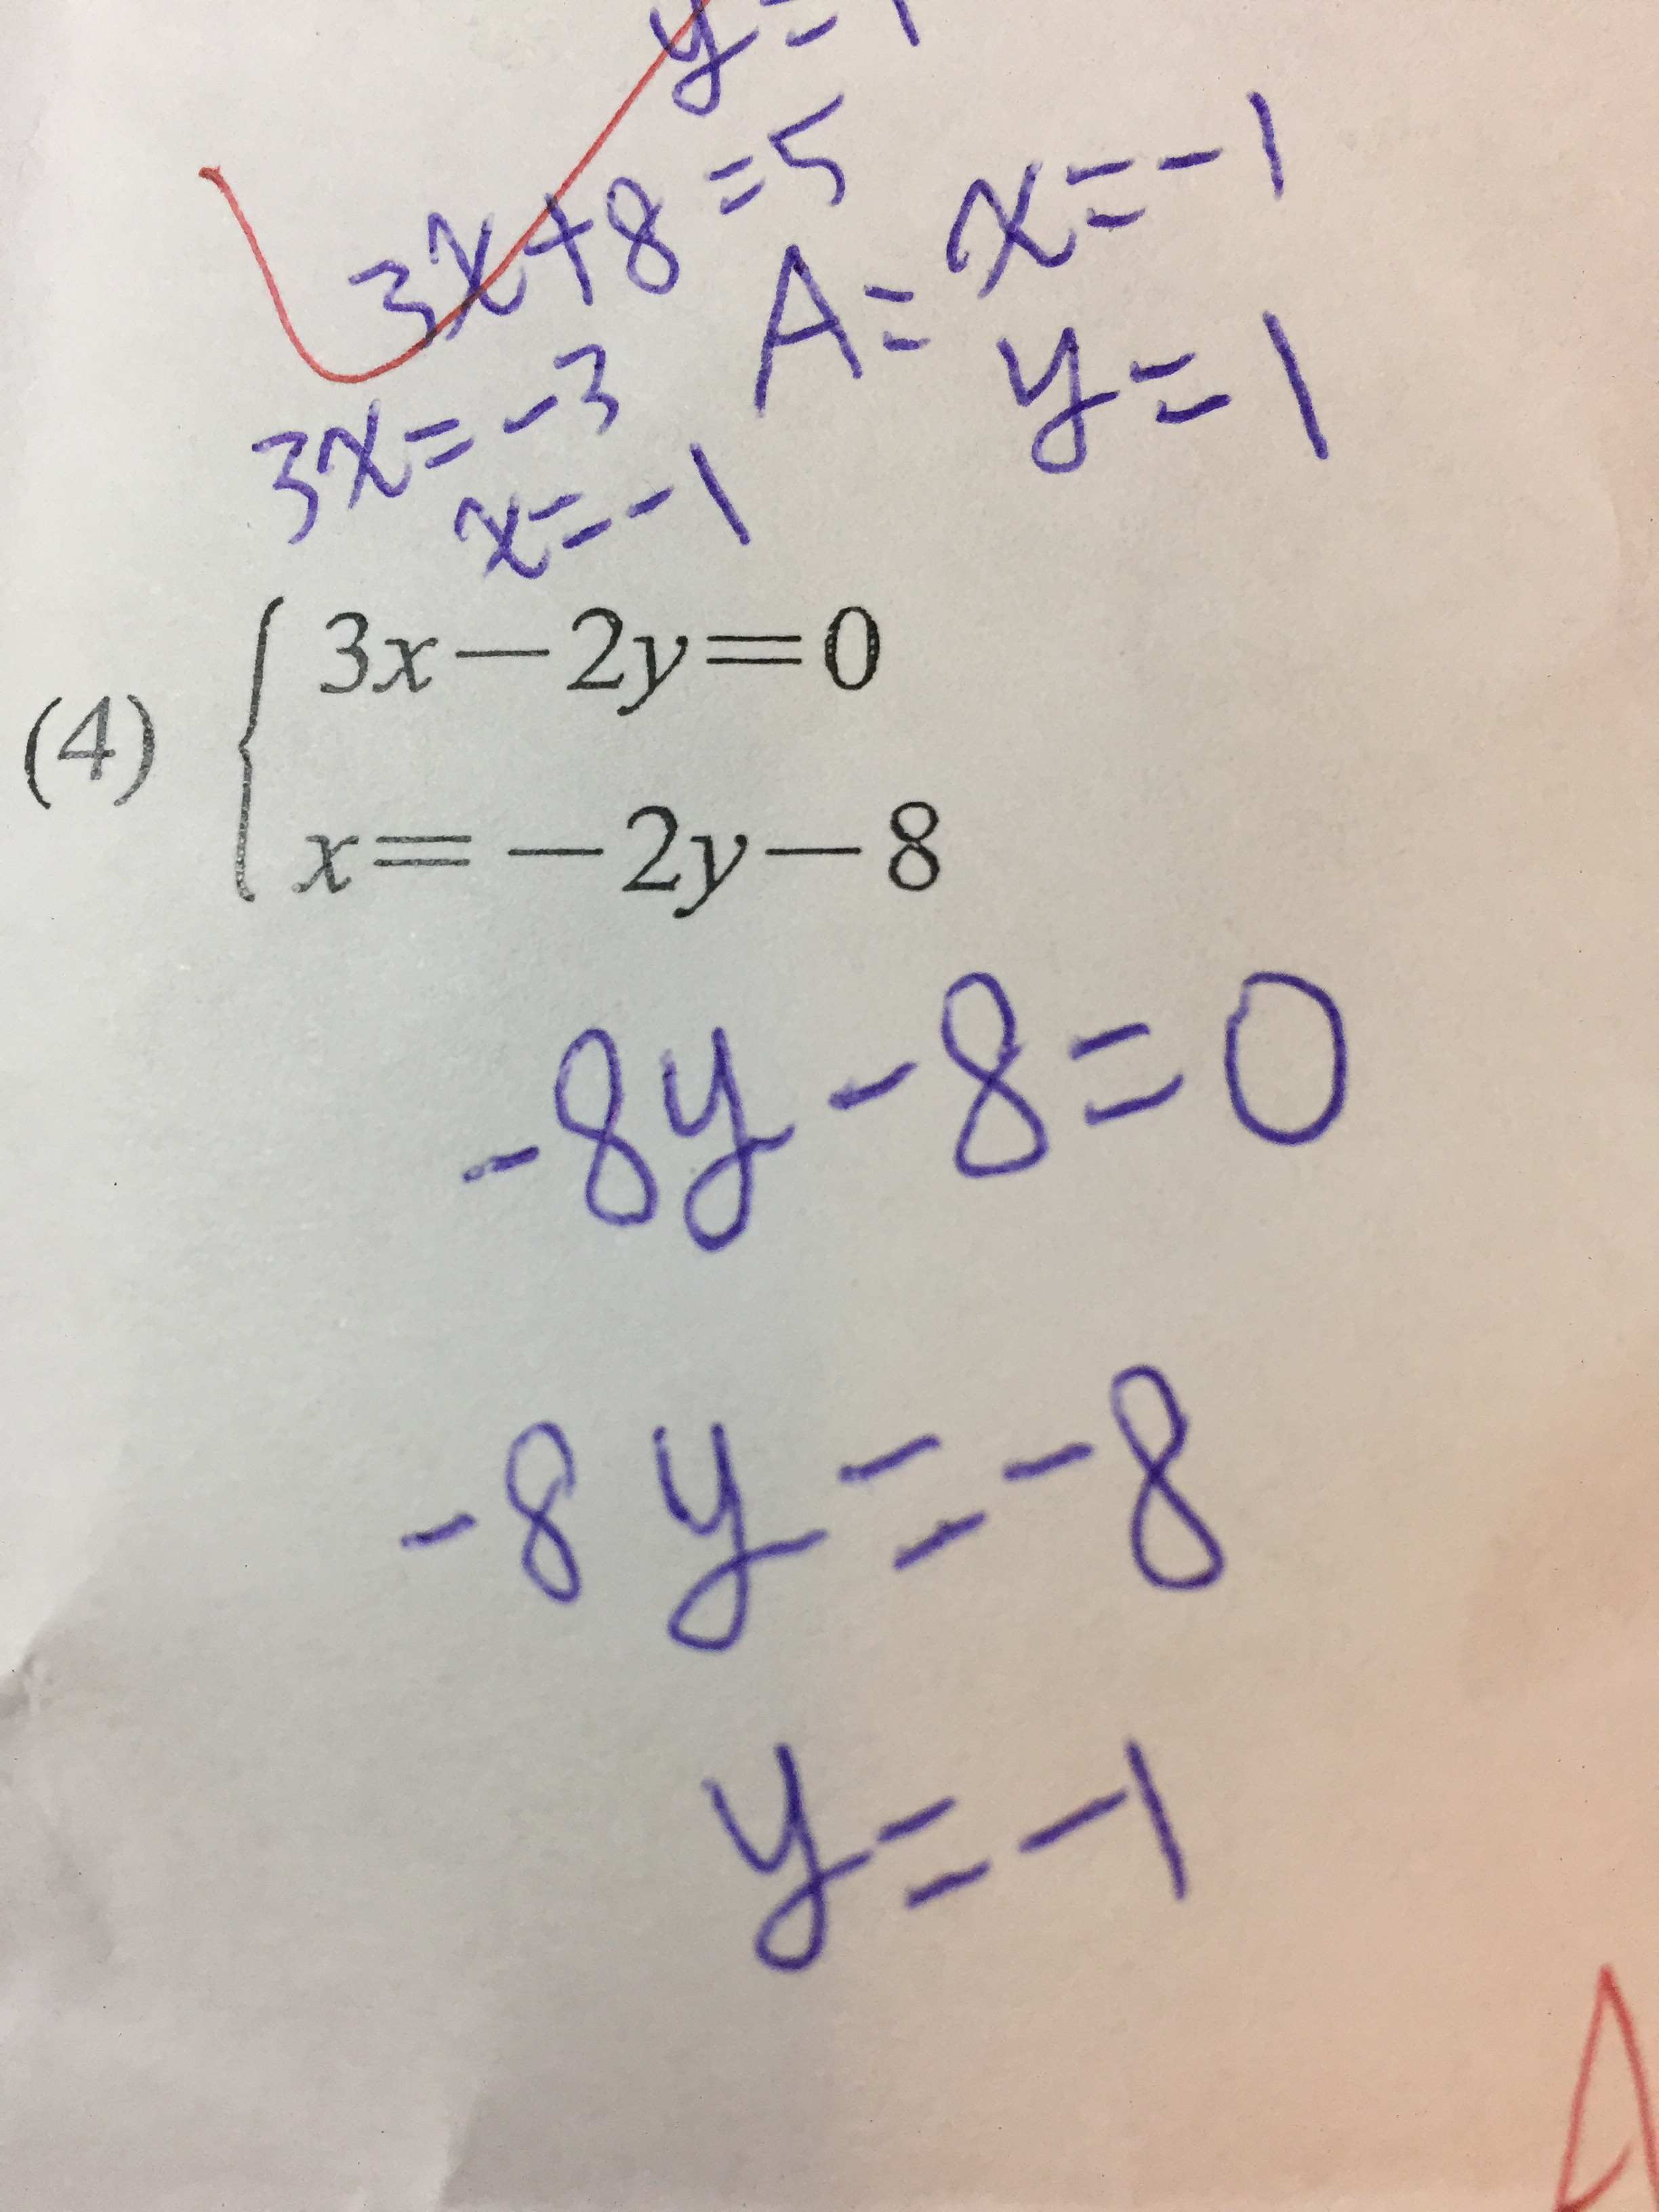 y=1
3x+8=5
A= x=-1
y=1
3x=-3
x=-1
(4) { 3x-2y=0
x=-2y-8
-8y-8=0
-8y=-8
y=-1